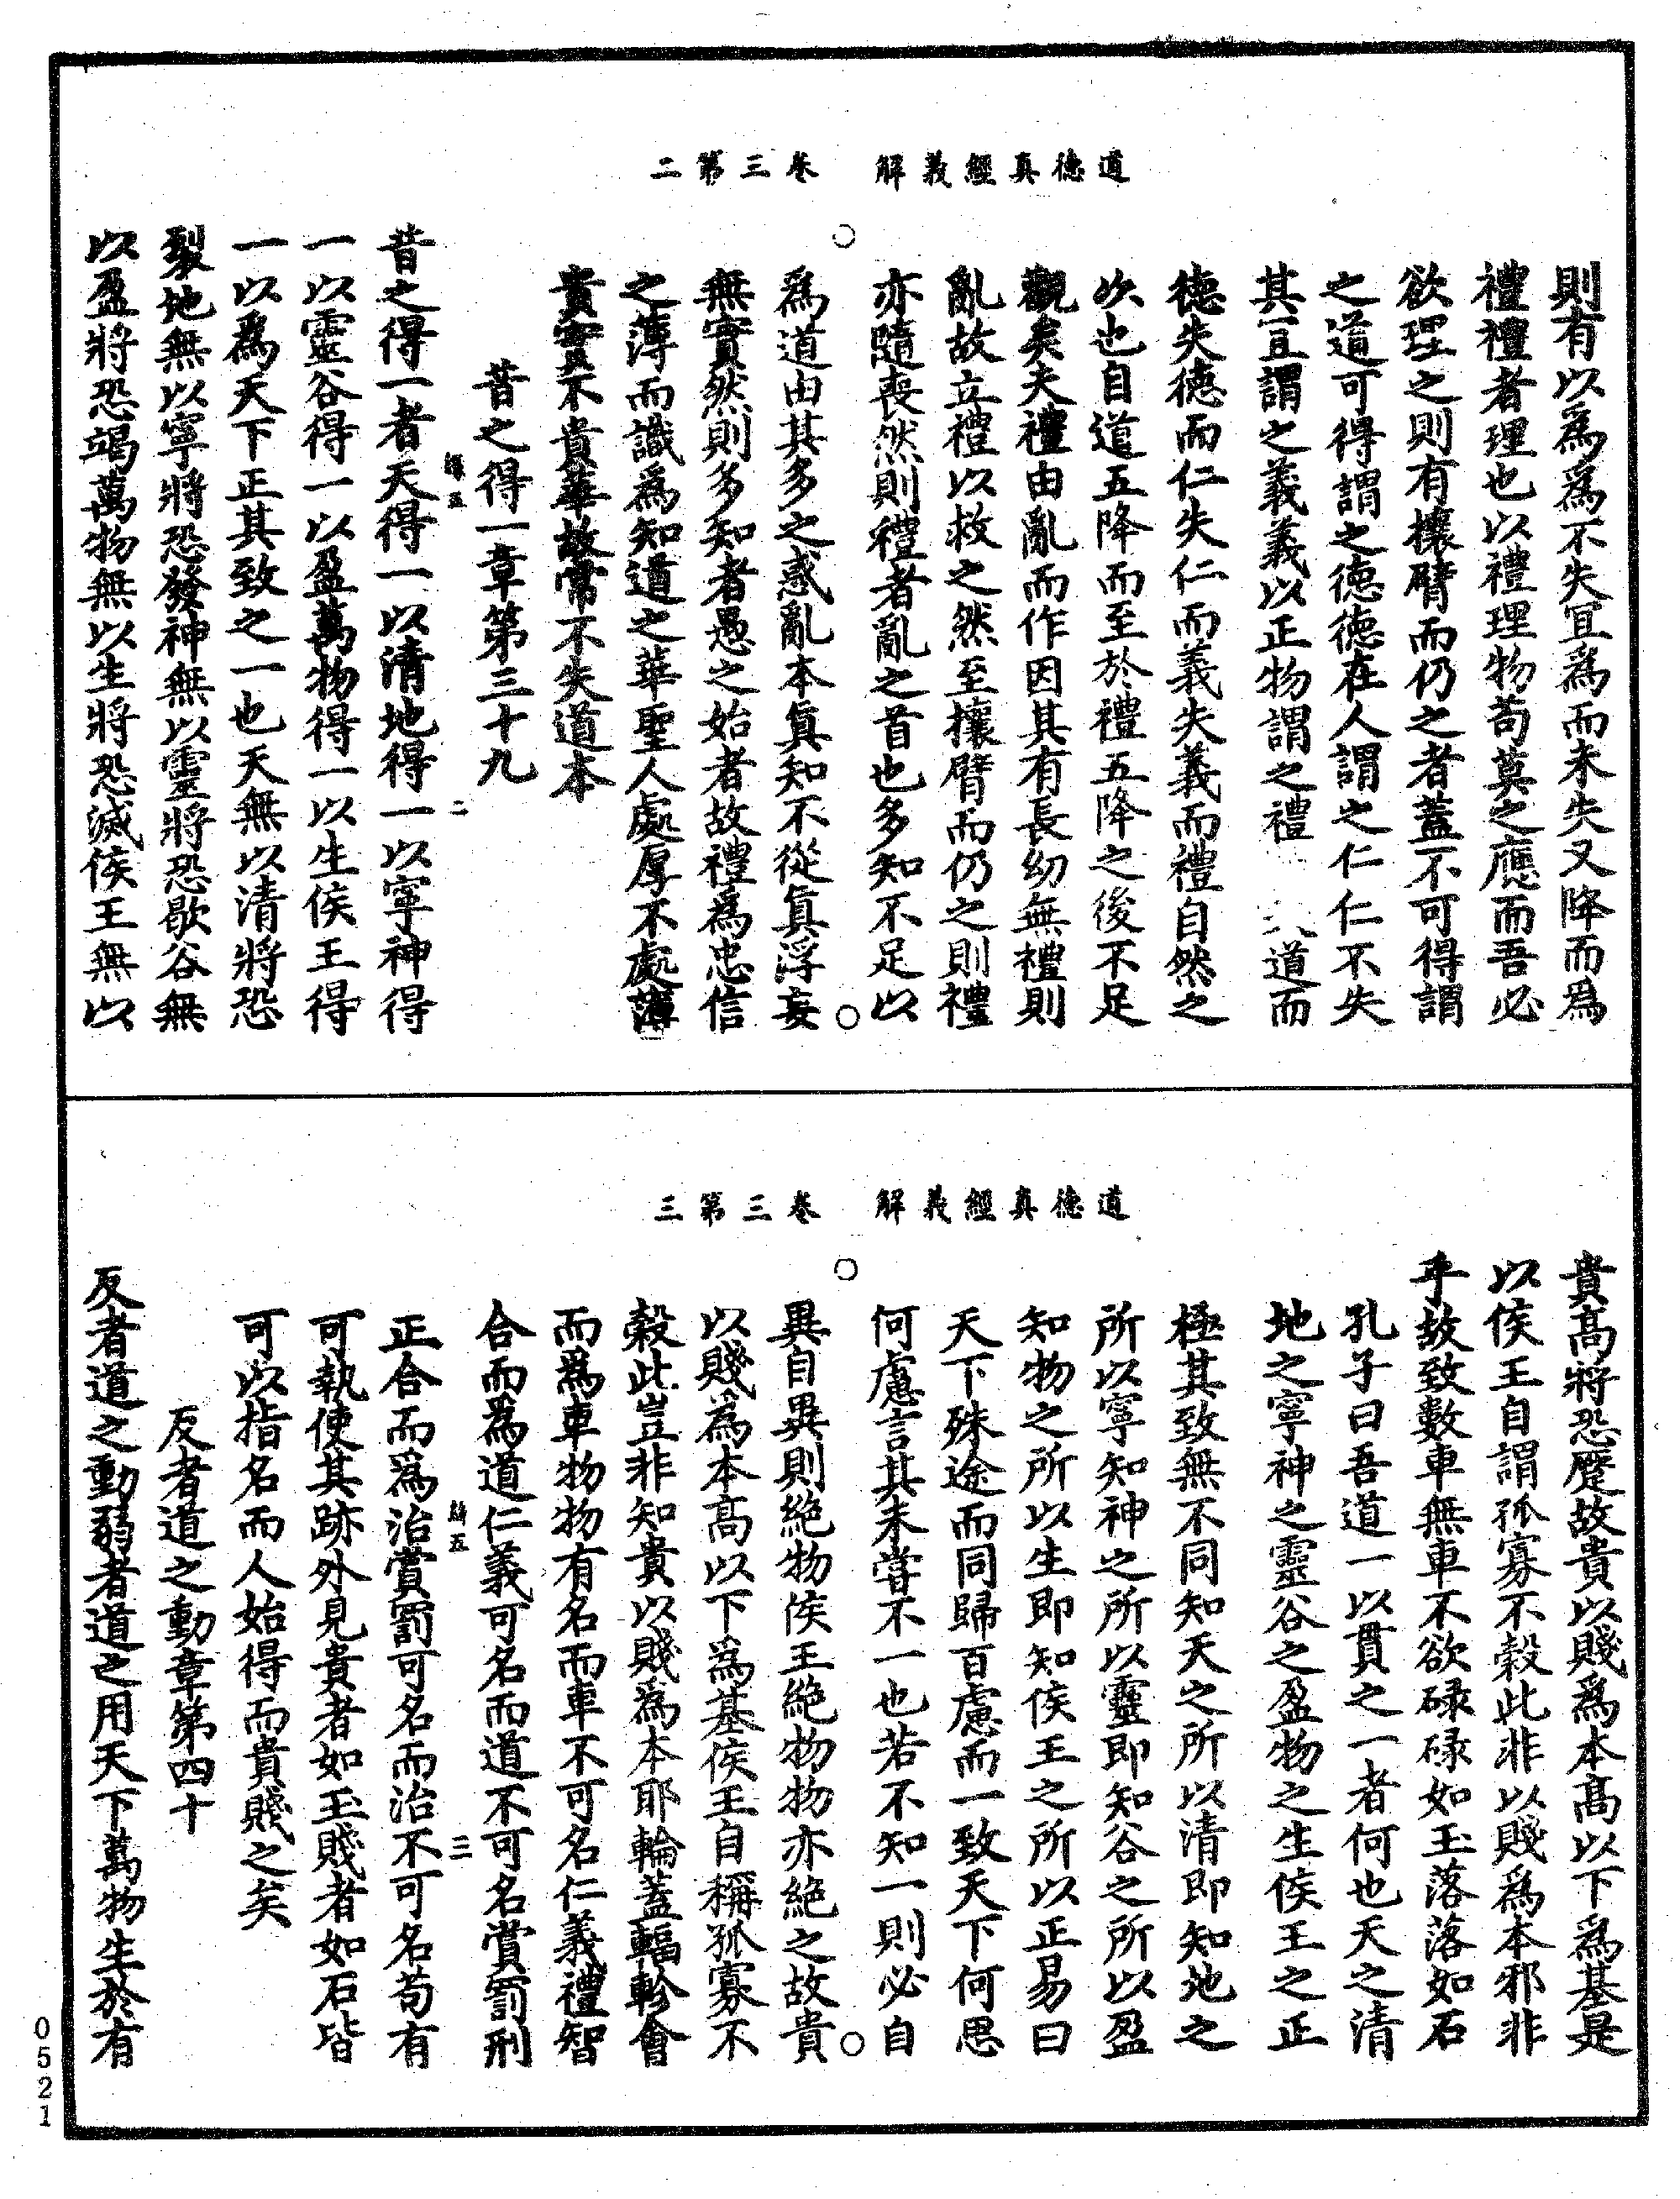 道德真經義解　卷三第二
則有以爲爲不失宜爲而未失又降而爲
禮禮者理也以禮理物苟莫之應而吾必
欲理之則有攘臂而仍之者蓋不可得謂
之道可得謂之德德在人謂之仁仁不失
其宜謂之義義以正物謂之禮　失道而
德失德而仁失仁而義失義而禮自然之
次也自道五降而至於禮五降之後不足
觀矣夫禮由亂而作因其有長幼無禮則
亂故立禮以救之然至攘臂而仍之則禮
亦隨喪然則禮者亂之首也多知不足以
爲道由其多之惑亂本真知不從真浮妄
無實然則多知者愚之始者故禮爲忠信
之薄而識爲知道之華聖人處厚不處薄
貴實不貴華故常不失道本
昔之得一章第三十九
昔之得一者天得一以清地得一以寧神得
一以靈谷得一以盈萬物得一以生侯王得
一以爲天下正其致之一也天無以清將恐
裂地無以寧將恐發神無以靈將恐歇谷無
以盈將恐竭萬物無以生將恐滅侯王無以
道德真經義解　卷三第三
貴高將恐蹷故貴以賤爲本高以下爲基是
以侯王自謂孤寡不穀此非以賤爲本邪非
乎故致數車無車不欲碌碌如玉落落如石
孔子曰吾道一以貫之一者何也天之清
地之寧神之靈谷之盈物之生侯王之正
極其致無不同知天之所以清即知地之
所以寧知神之所以靈即知谷之所以盈
知物之所以生即知侯王之所以正易曰
天下殊途而同歸百慮而一致天下何思
何慮言其未嘗不一也若不知一則必自
異自異則絶物侯王絶物物亦絶之故貴
以賤爲本高以下爲基侯王自稱孤寡不
穀此豈非知貴以賤爲本耶輪蓋輻軫會
而爲車物物有名而車不可名仁義禮智
合而爲道仁義可名而道不可名賞罰刑
正合而爲治賞罰可名而治不可名苟有
可執使其跡外見貴者如玉賤者如石皆
可以指名而人始得而貴賤之矣
反者道之動章第四十
反者道之動弱者道之用天下萬物生於有
0521